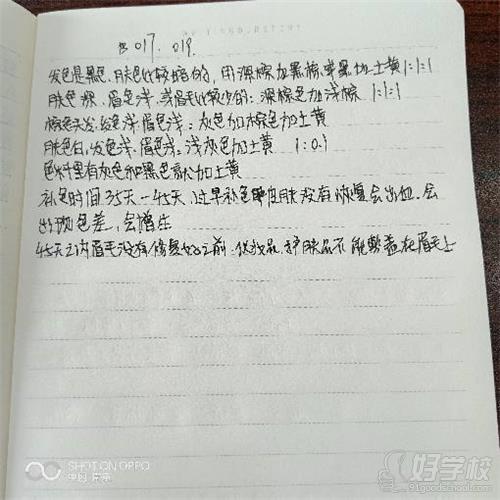 017. 019.
发色是黑色.肤色比较暗的,用深棕加黑棕 加土黄1:1:1
肤色深.眉色浅.或眉毛比较少的:深棕色加浅棕 1:1:1
棕色头发,发色浅.眉色浅:灰色加棕色加土黄
肤色白,发色浅.眉色浅:浅灰色加土黄 1:0.1
色料里有灰色和黑色 加土黄
补色时间35天-45天.过早补色 皮肤没有恢复会出血.会
出现色差,会增生
45天之内眉毛没有修复好之前.化妆品.护肤品不能 盖在眉毛上
SHOT ON OPPO
好学校
91goodschool.com